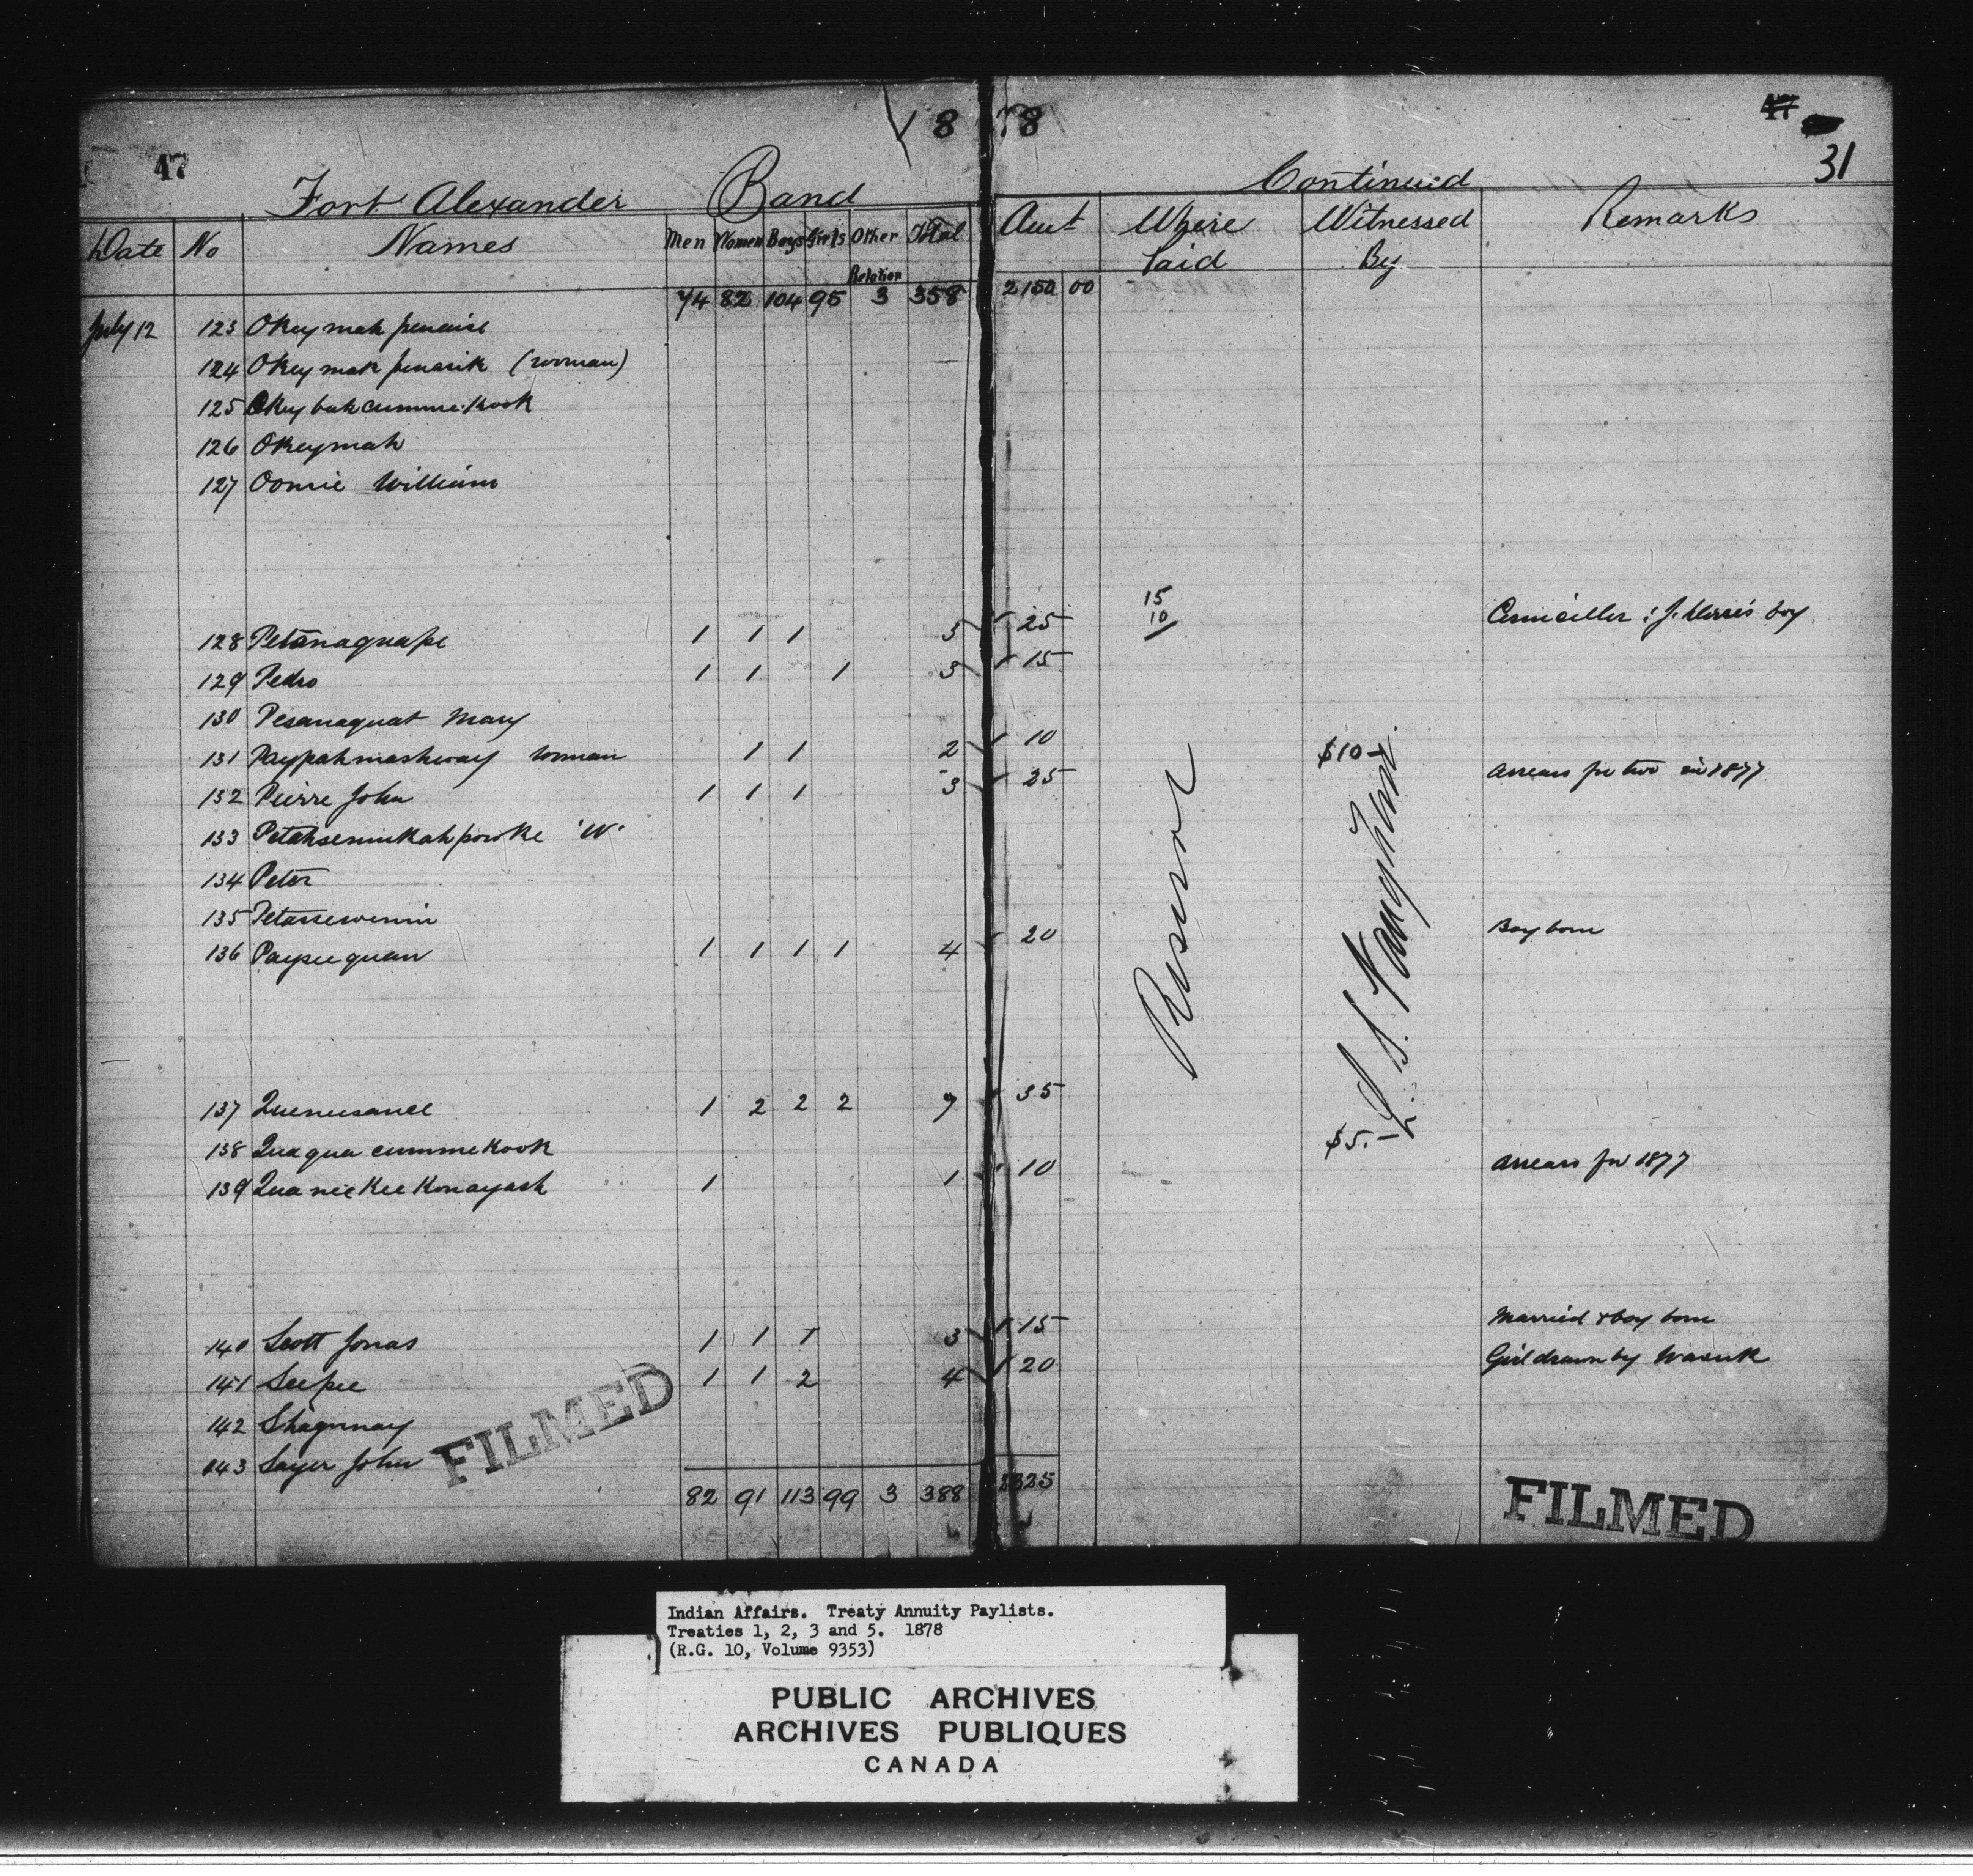 1878
47
47
31
Fort Alexander Band Continued
Date No Names Men Women Boys Girls Other Relation Total Amt Where Paid Witnessed By Remarks
74 82 104 95 3 358 2150 00
July 12 123 Okeymah penaise
124 Okeymah penasik (woman)
125 Okeybahcummekook
126 Okeymah
127 William
128 Petanaquape 1 1 1 3 25 15 10 Councillor
129 Pedro 1 1 1 3 15
130 Pesanaquat Mary
131 Paypahmashway woman 1 1 2 10
132 Pierre John 1 1 1 3 25 $10- arrears for two in 1877
133 Petahsemukahpowke 'W'
134 Peter
135 Petassewenin
136 Payseequan 1 1 1 1 4 20 Boy born
137 1 2 2 2 7 35
138 Quaquacummekook
139 1 1 10 $5.- arrears for 1877
140 Scott Jonas 1 1 1 3 15 Married & boy born
141 Seepee 1 1 2 4 20 Girl drawn by Wasuk
142 Shagunay
143 Sayer John
82 91 113 99 3 388 2325
FILMED
FILMED
Indian Affairs. Treaty Annuity Paylists.
Treaties 1, 2, 3 and 5. 1878
(R.G. 10, Volume 9353)
PUBLIC ARCHIVES
ARCHIVES PUBLIQUES
CANADA